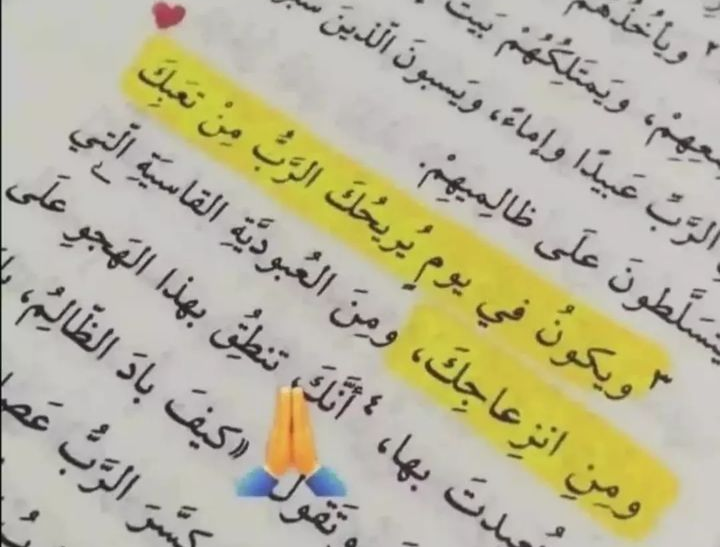 ٢ ويأخُذُهُمْ
ويَمتَلِكُهُمْ بَيتُ
الرَّبِّ عَبيدًا وإماءً، ويَسبونَ الّذينَ
يتَسَلَّطونَ علَى ظالِميهِمْ.
٣ ويكونُ في يومٍ يُريحُكَ الرَّبُّ مِنْ تعَبِكَ
ومِنِ انزِعاجِكَ، ومِنَ العُبوديَّةِ القاسيَةِ الّتي
بها، ٤ أنَّكَ تنطِقُ بهذا الهَجوِ علَى
وتَقولُ «كيفَ بادَ الظّالِمُ،
الرَّبُّ